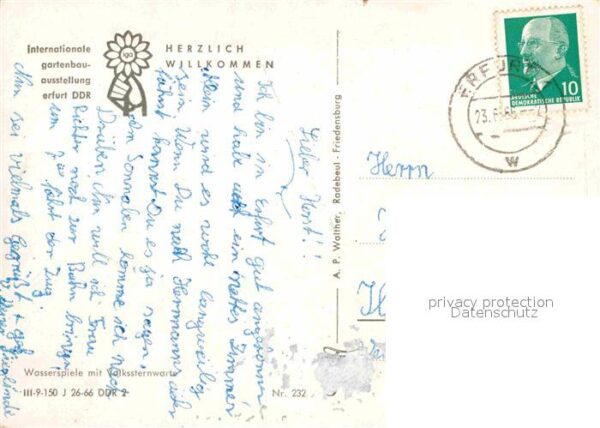 Internationale
gartenbau-
ausstellung
erfurt DDR
iga
HERZLICH
WILLKOMMEN
Lieber Horst!!
Ich bin in Erfurt gut angekommen
und habe auch ein nettes Zimmer
allein wird es wohl langweilig
sein. Wenn Du nach Hermannsdorf
fährst kannst Du es ja sagen,
den Sonnabend komme ich nach
Drüben. Ihn will ich Frau
Richter noch zur Bahn bringen
um 7 fährt der Zug.
Nun sei vielmals gegrüßt + gek.
v. Deiner Sieglinde
Wasserspiele mit Volkssternwarte
III-9-150 J 26-66 DDR 2
Nr. 232
A. P. Walther, Radebeul - Friedensburg
DEUTSCHE
DEMOKRATISCHE REPUBLIK
10
ERFURT
23.6.66
w
Herrn
privacy protection
Datenschutz